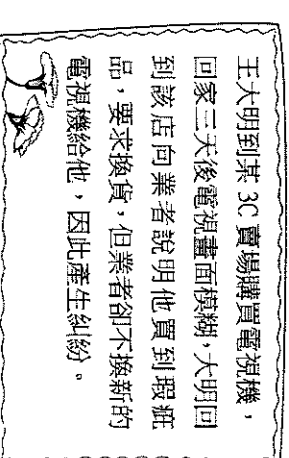 王大明到某 3C 賣場購買電視機，
回家三天後電視畫面模糊，大明回
到該店向業者說明他買到瑕疵
品，要求換貨，但業者卻不換新的
電視機給他，因此產生糾紛。